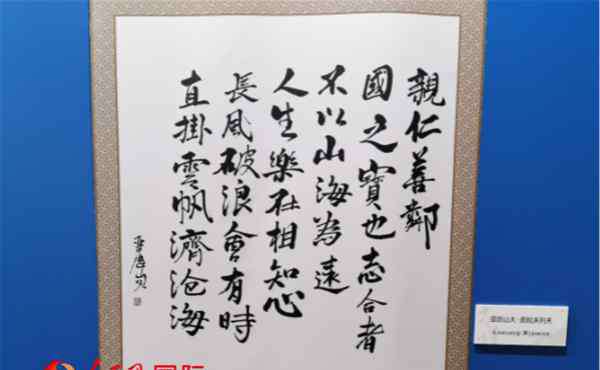 親仁善鄰
國之寶也志合者
不以山海為遠
人生樂在相知心
長風破浪會有時
直掛雲帆濟滄海
亚历山大·